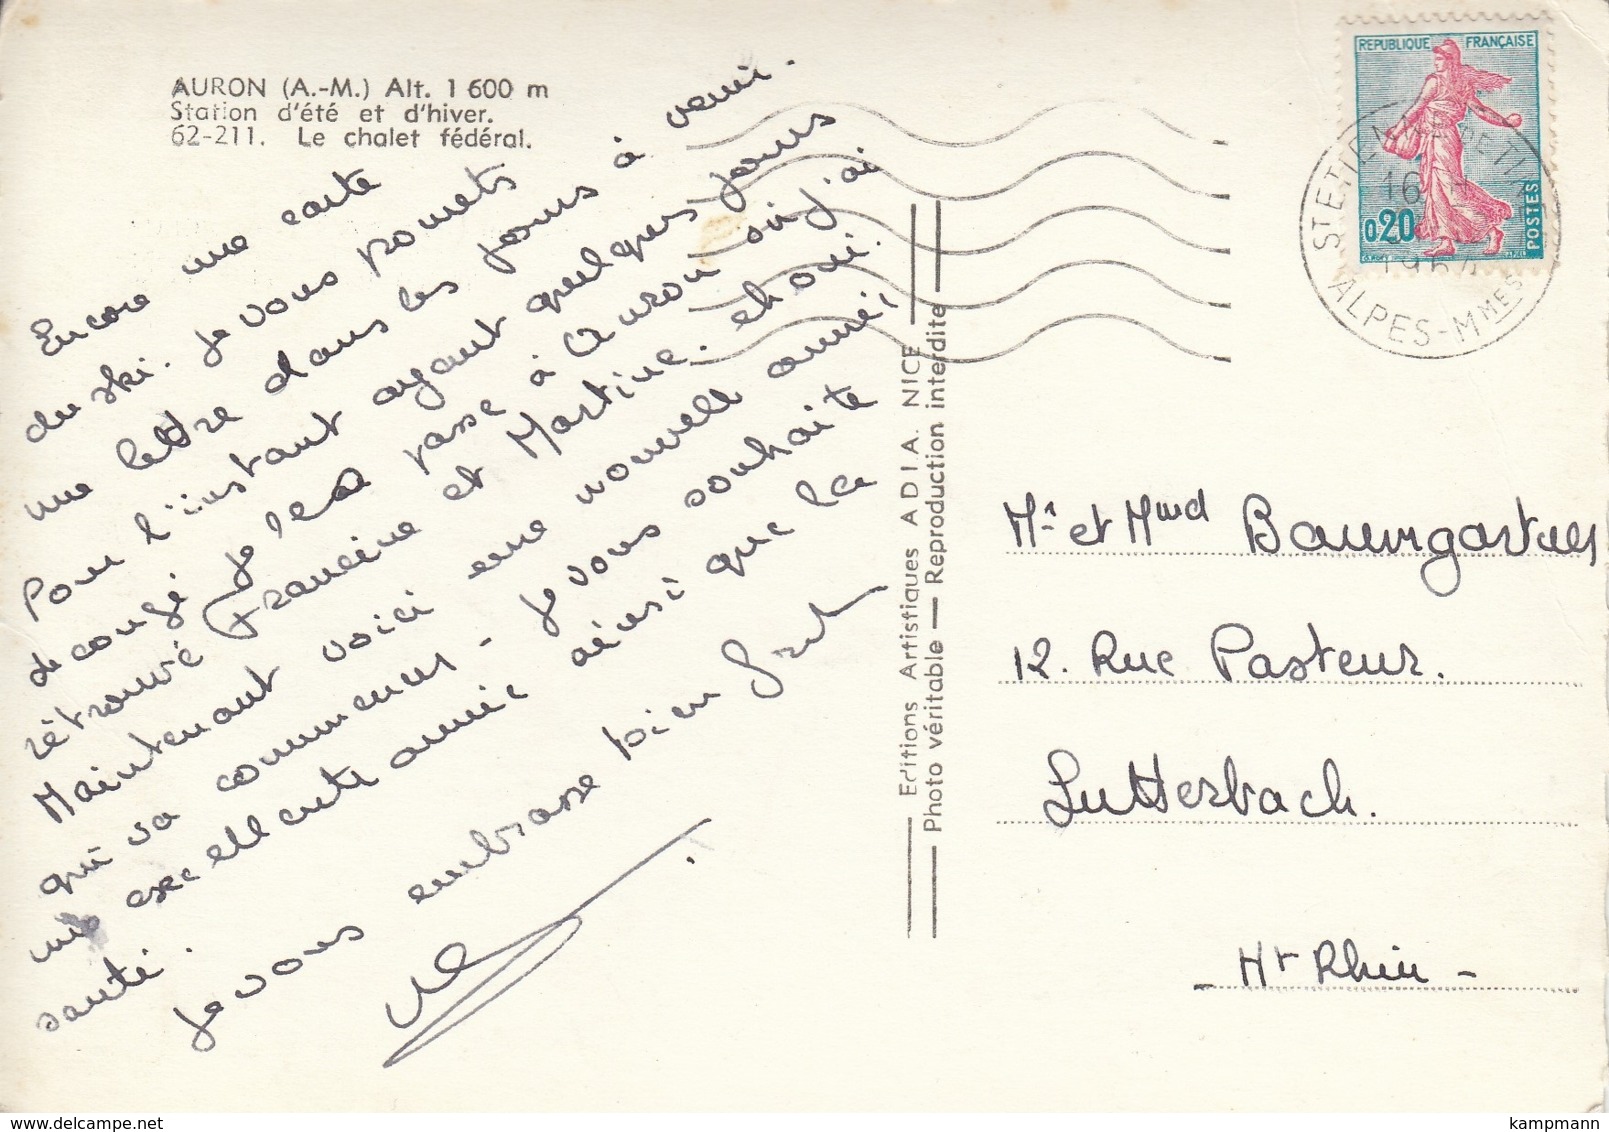 AURON (A.-M.) Alt. 1 600 m
Station d'été et d'hiver.
62-211. Le chalet fédéral.
Encore une carte
du ski. Je vous promets
une lettre dans les jours à venir.
Pour l'instant ayant quelques jours
de congé je les passe à Auron où j'ai
rétrouvé Francine et Martine. choui.
Maintenant voici une nouvelle année
qui va commencer - Je vous souhaite
une excellente année ainsi que la
santé.
Je vous embrasse bien fort
Editions Artistiques A D I A. NICE
Photo véritable — Reproduction interdite
REPUBLIQUE FRANÇAISE
0,20
POSTES
ST ETIENNE
16
1964
ALPES-MMES
Mr et Mme Baumgartner
12. Rue Pasteur.
Lutterbach.
Ht Rhin -
kampmann